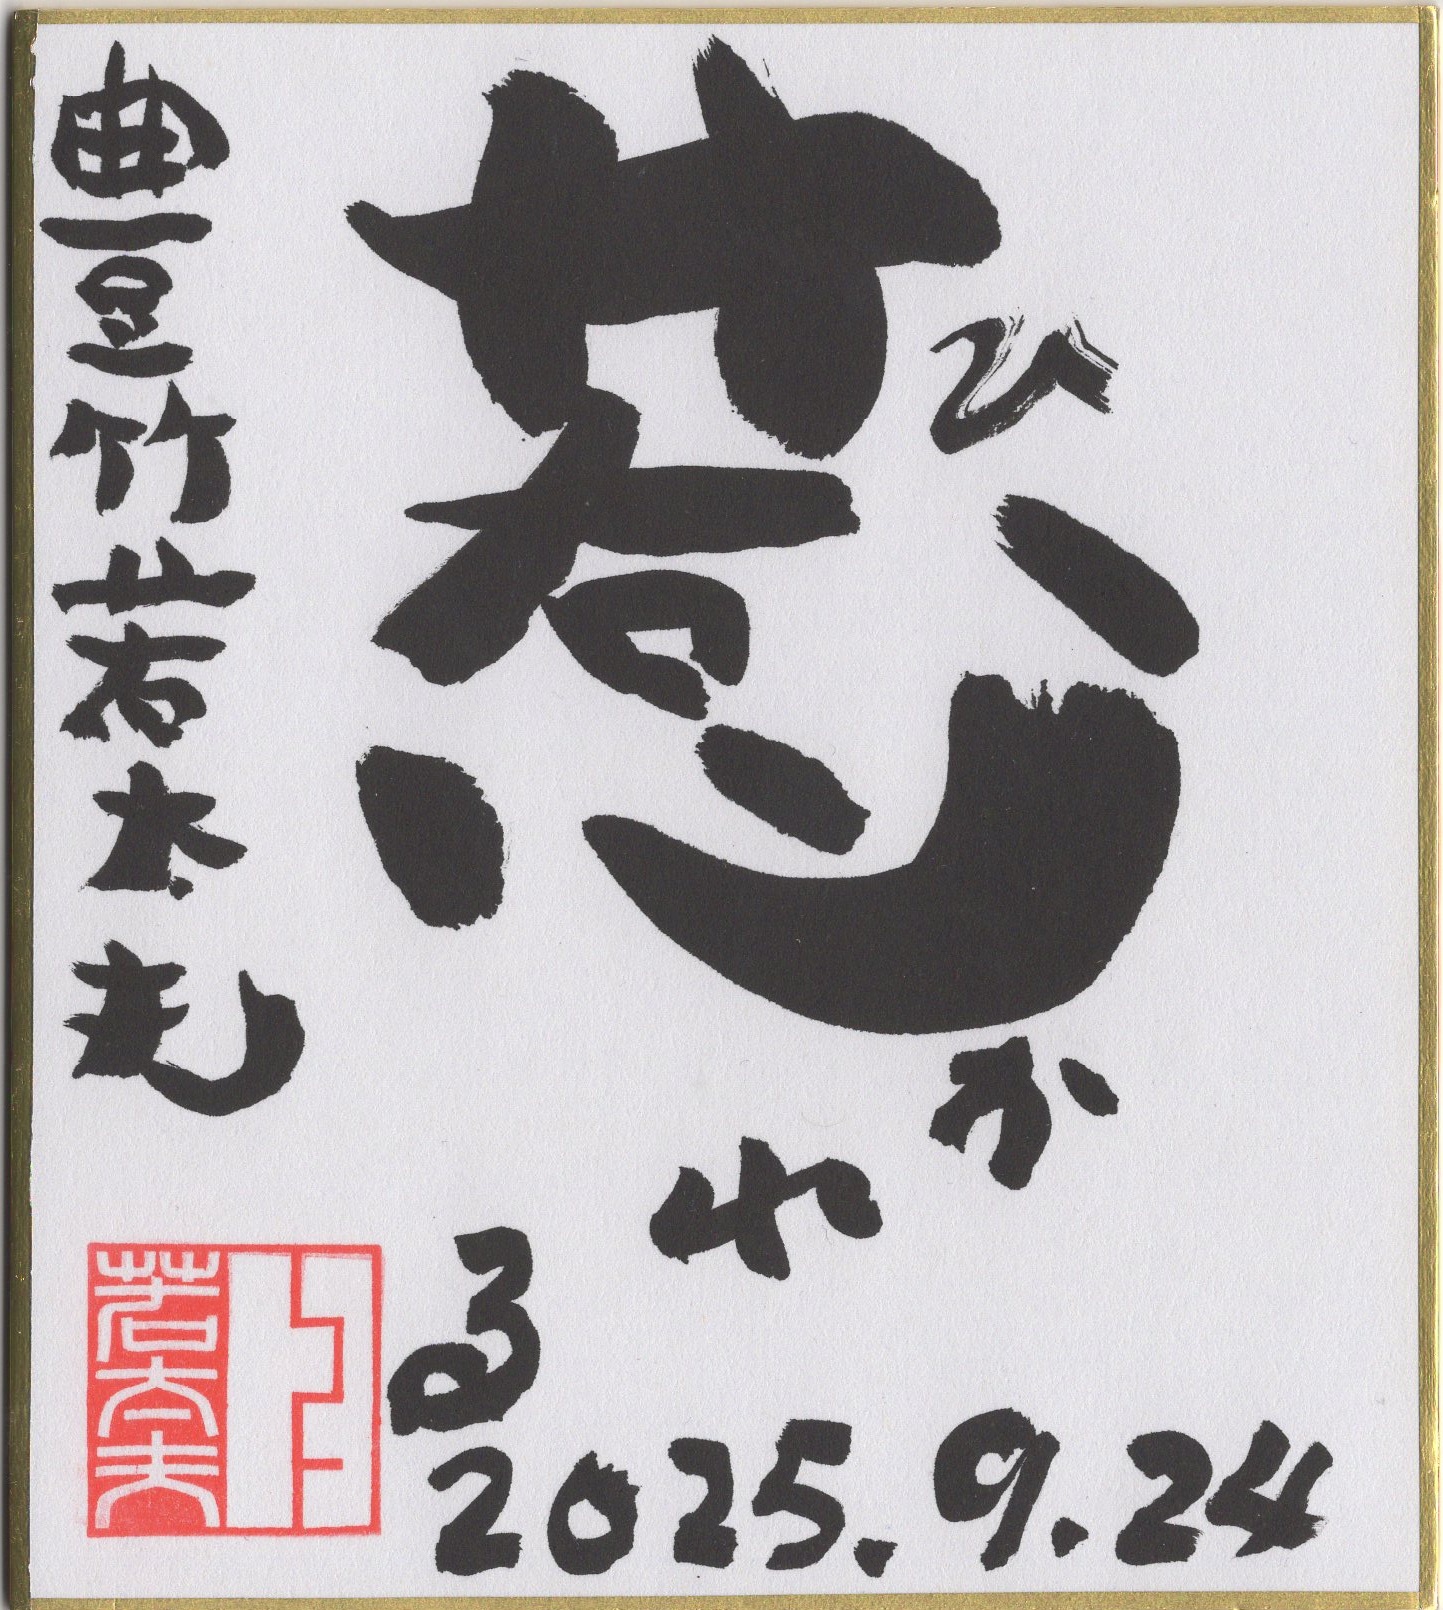 ひ
惹かれる
2025.9.24
豊竹若太夫
若太夫